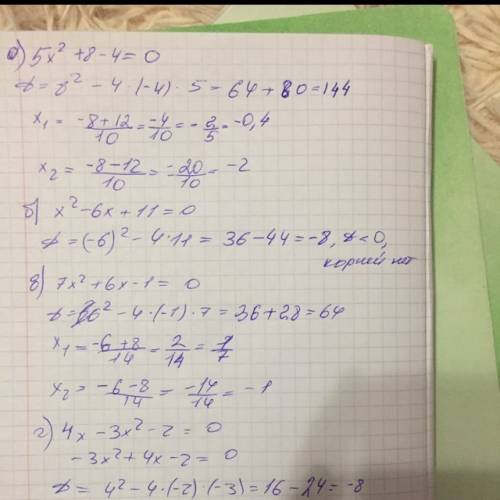 а) 5x² + 8 - 4 = 0
D = 8² - 4 · (-4) · 5 = 64 + 80 = 144
x₁ = (-8+12)/10 = -4/10 = -2/5 = -0,4
x₂ = (-8-12)/10 = -20/10 = -2
б) x² - 6x + 11 = 0
D = (-6)² - 4 · 11 = 36 - 44 = -8, D < 0,
корней нет
в) 7x² + 6x - 1 = 0
D = 6² - 4 · (-1) · 7 = 36 + 28 = 64
x₁ = (-6+8)/14 = 2/14 = 1/7
x₂ = (-6-8)/14 = -14/14 = -1
г) 4x - 3x² - 2 = 0
-3x² + 4x - 2 = 0
D = 4² - 4 · (-2) · (-3) = 16 - 24 = -8